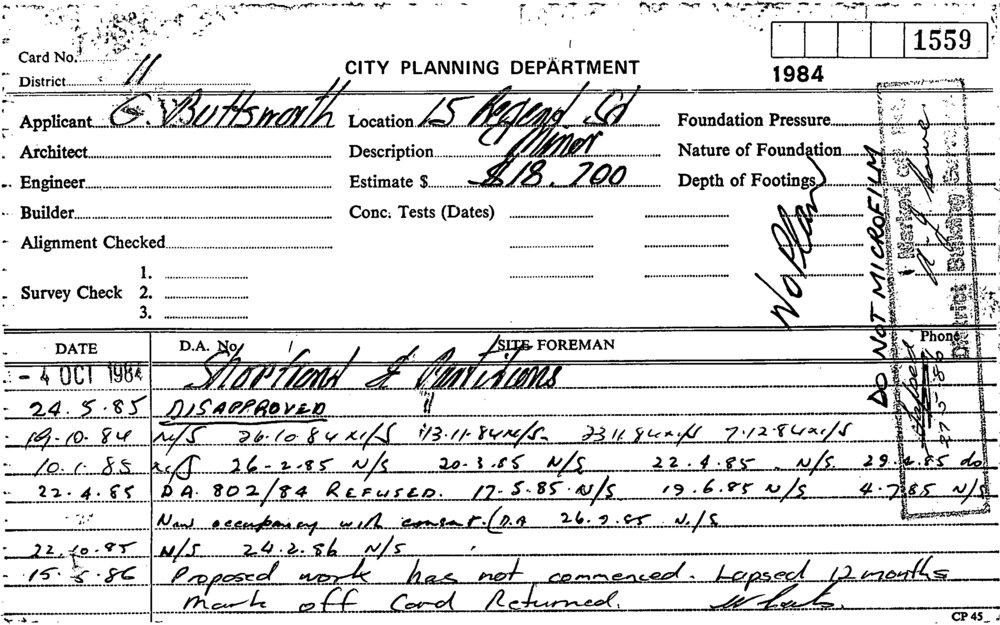 1559
1984
Card No.
District 11
CITY PLANNING DEPARTMENT
Applicant G. Buttsworth
Location 15 Regent St
Foundation Pressure
Architect
Description Minor
Nature of Foundation
Engineer
Estimate $ $18.700
Depth of Footings
Builder
Conc. Tests (Dates)
Alignment Checked
1.
Survey Check 2.
3.
No Plan
DO NOT MICROFILM
Marked off
District Building
27-5-86
DATE D.A. No. SITE FOREMAN Phone
- 4 OCT 1984 & Partitions
24.5.85 DISAPPROVED
19.10.84 N/S 26.10.84 N/S 13.11.84 N/S 23.11.84 N/S 7.12.84 N/S
10.1.85 N/S 26-2.85 N/S 20.3.85 N/S 22.4.85. N/S 29.4.85 do
22.4.85 DA. 802/84 REFUSED. 17.5.85 N/S 19.6.85 N/S 4.7.85 N/S
occupancy with consent. (DA 26.9.85 N/S
22.10.85 N/S 24.2.86 N/S
15.5.86 Proposed work has not commenced. Lapsed 12 months
mark off Card Returned.
CP 45